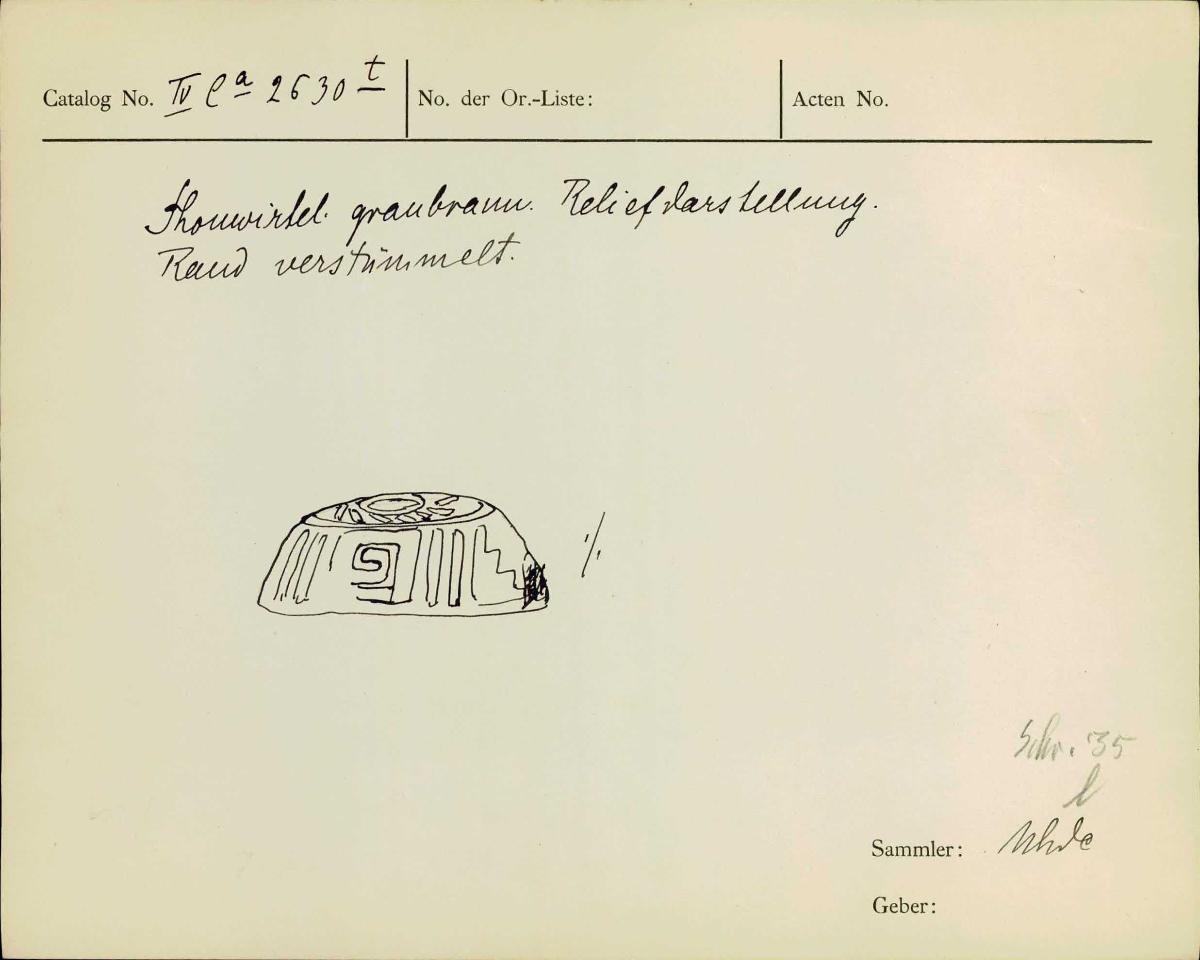 Catalog No. IV Ca 2630 t
No. der Or.-Liste:
Acten No.
Thonwirtel. graubraun. Reliefdarstellung.
Rand verstümmelt.
1/1
Schr. 35
l
Sammler: Uhde
Geber: